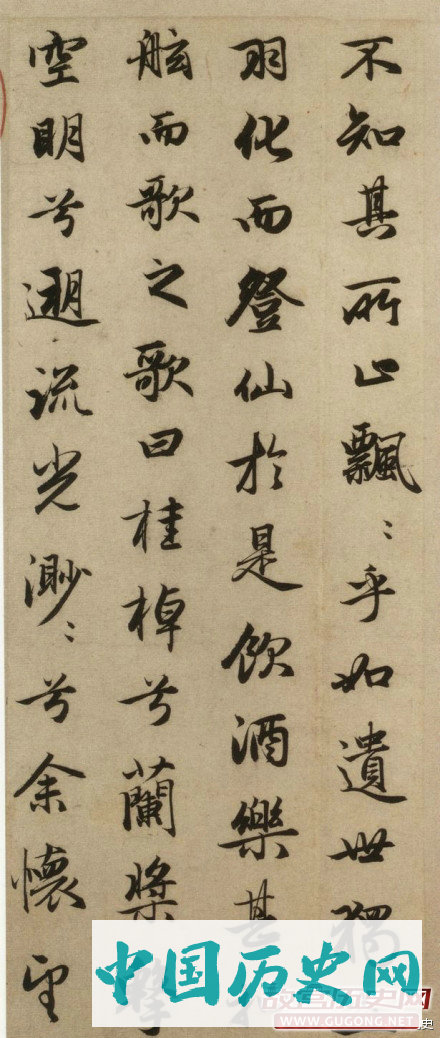 不知其所止飄〻乎如遺世獨
羽化而登仙於是飲酒樂甚
舷而歌之歌曰桂棹兮蘭槳
空明兮遡流光渺〻兮余懷望
中国历史网
故宫历史网
WWW.GUGONG.NET
史